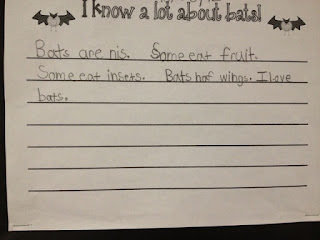 I know a lot about bats!
Bats are nis. Some eat fruit.
Some eat insets. Bats haf wings. I love
bats.